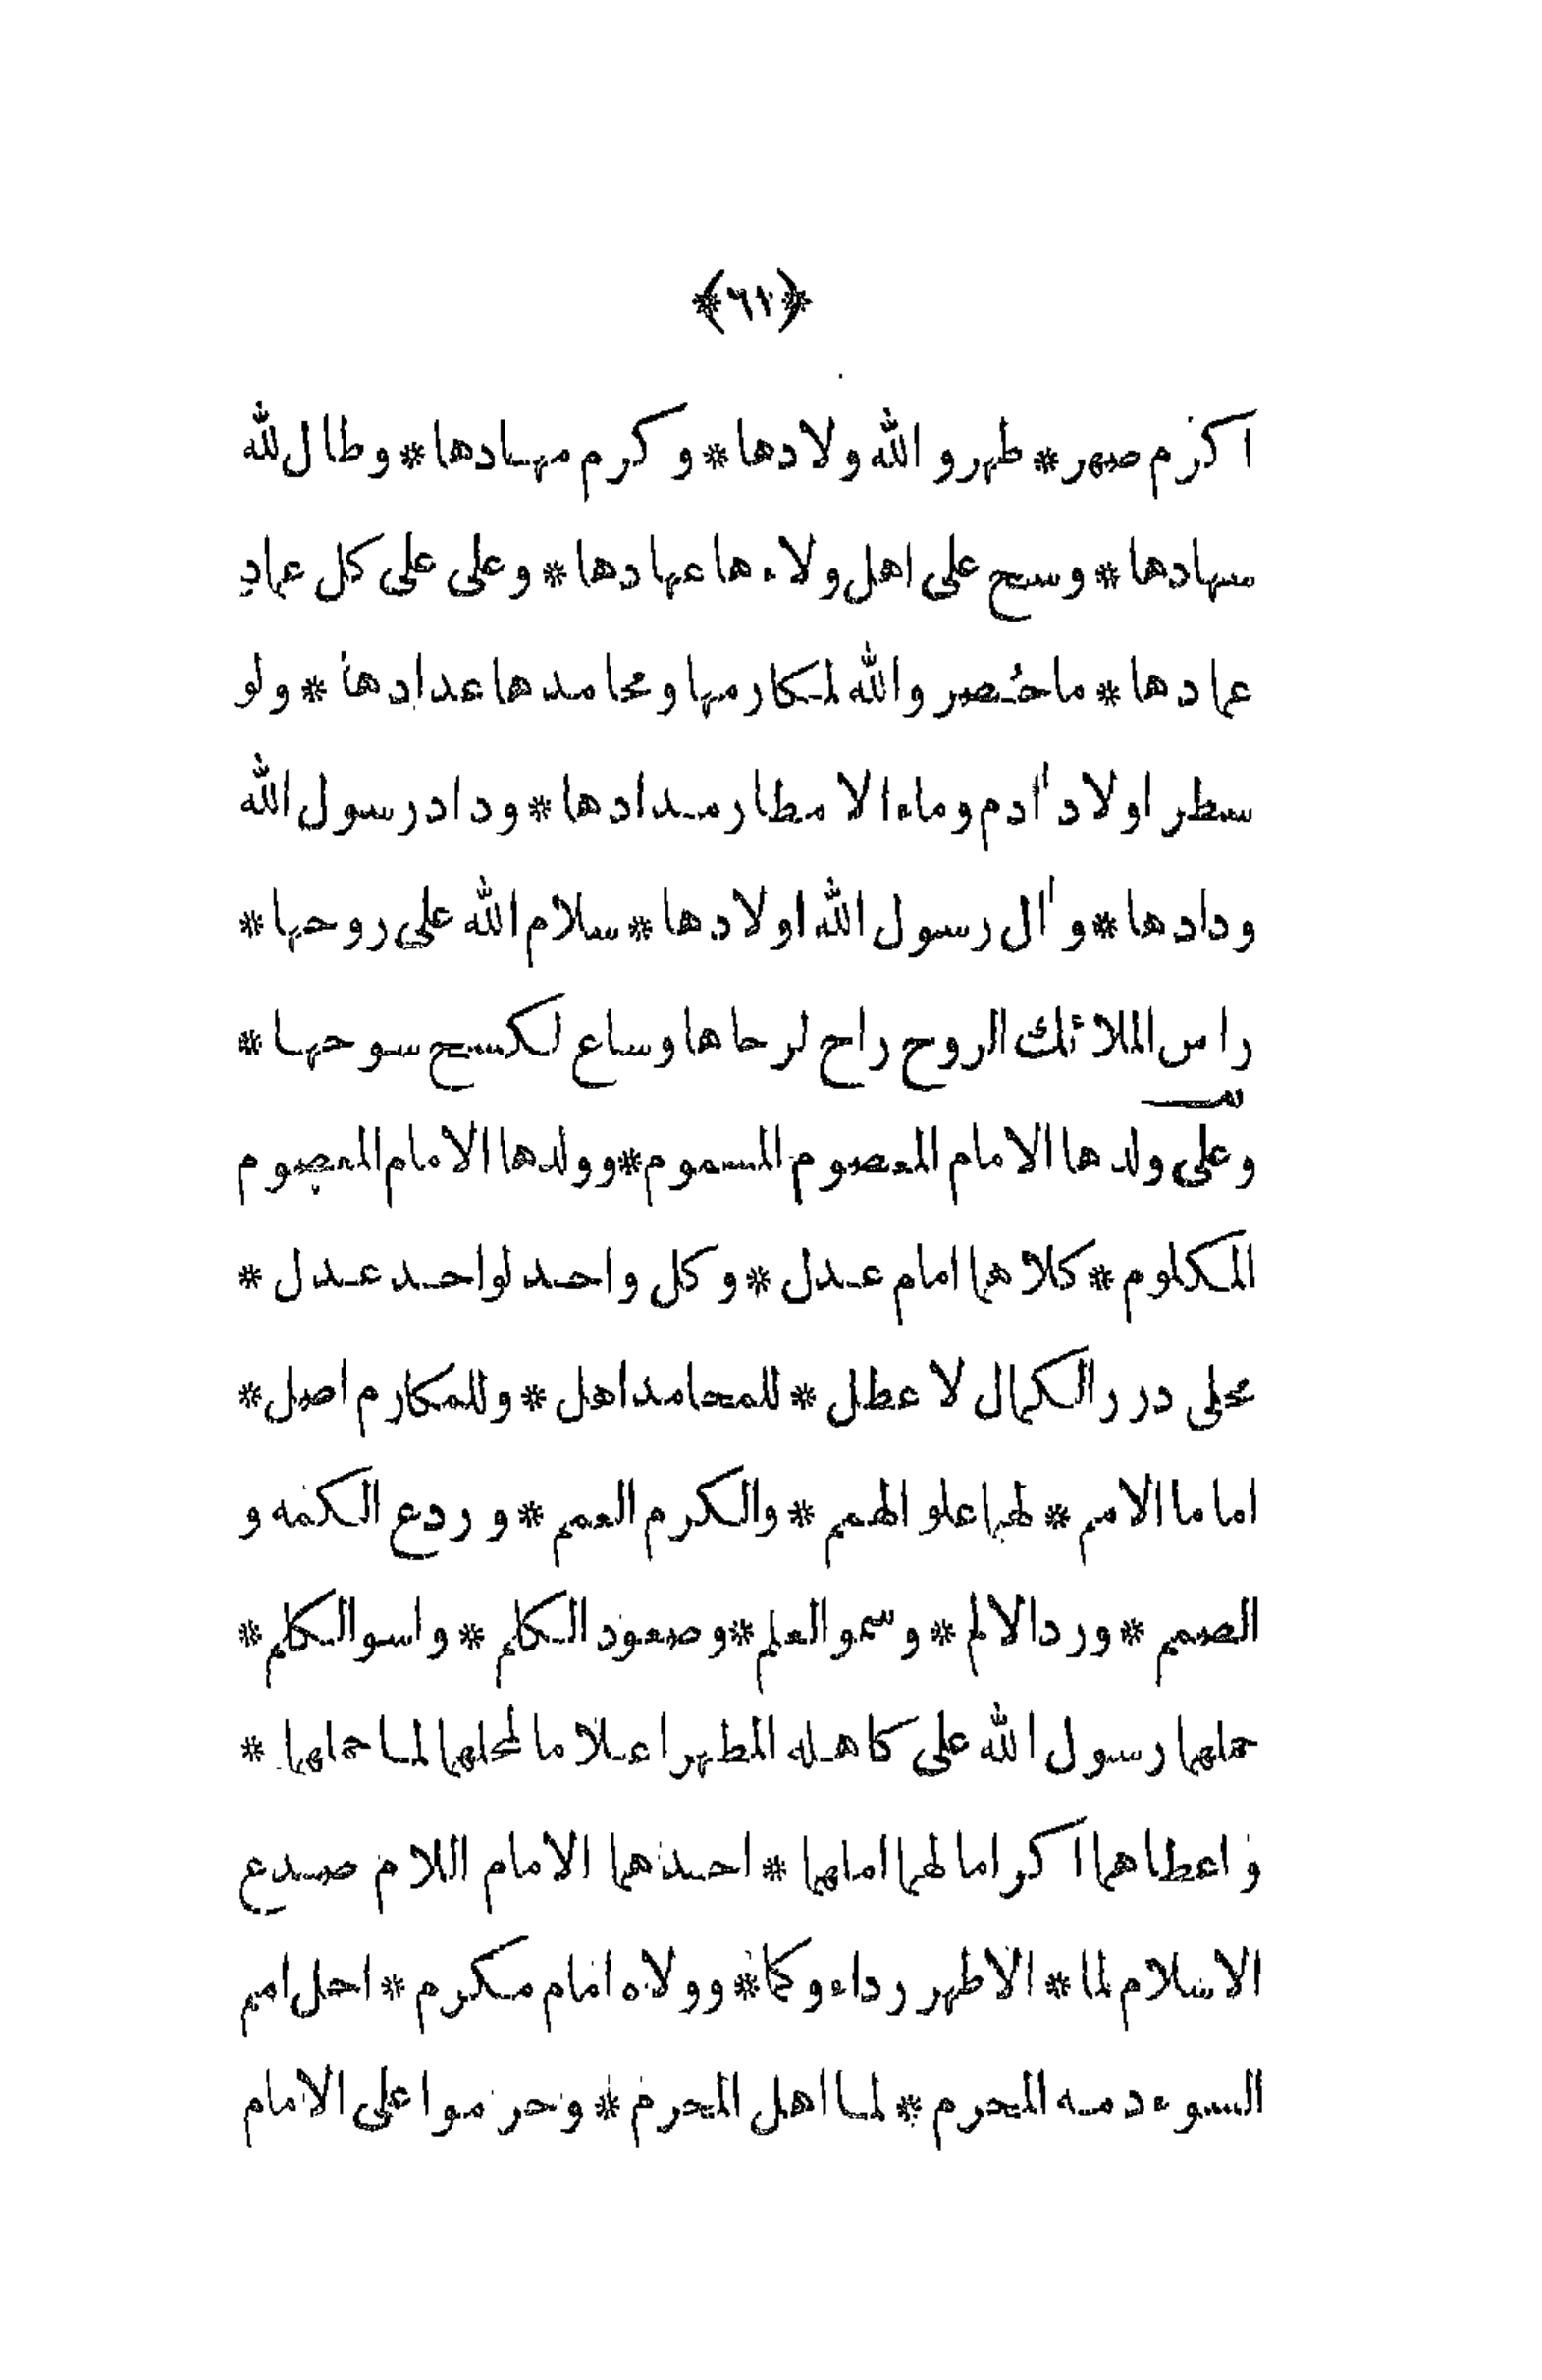 ﴿٦٢﴾
اكرم صهر * طهر والله ولادها * وكرم مهادها * وطال لله
سهادها * وسح على اهل ولاءها عهادها * وعلى على كل عماد
عمادها * ما حُصر والله لمكارمها ومحامدها عدادها * ولو
سطر اولاد اٰدم وماء الامطار مدادها * وداد رسول الله
ودادها * واٰل رسول الله اولادها * سلام الله على روحها *
راس الملائك الروح راح لرحاها وساع لكسح سوحها *
وعلى ولدها الامام المعصوم المسموم * وولدها الامام المعصوم
المكلوم * كلاهما امام عدل * وكل واحد لواحد عدل *
محلى درر الكمال لا عطل * للمحامد اهل * وللمكارم اصل *
اماما الامم * لهما علو الهمم * والكرم العمم * وردع الكمه و
الصمم * ورد الالم * وسمو العلم * وصعود الكلم * واسو الكلم *
حملهما رسول الله على كاهله المطهر اعلاما لمحلهما لما حملهما *
واعطاهما اكراما لهما امامهما * احدهما الامام اللام صدع
الاسلام لما * الاطهر رداء وكما * وولاه امام مكرم * احل امم
السوء دمه المحرم * لما اهل المحرم * وحرموا على الامام